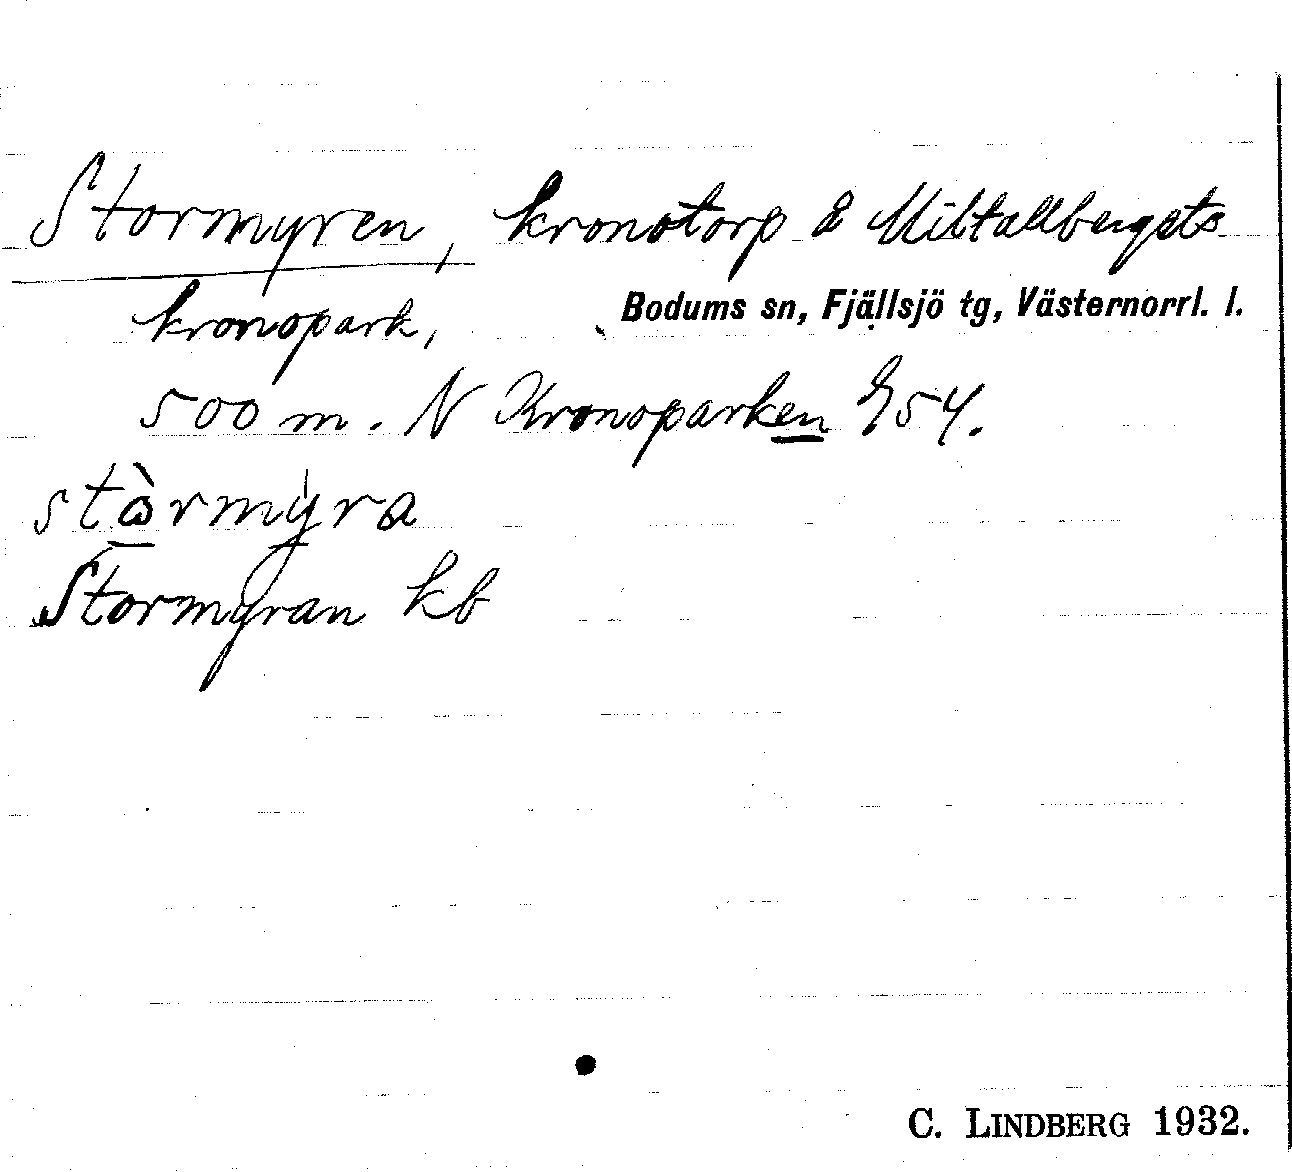 Stormyren, kronotorp å Miltallbergets
kronopark,
Bodums sn, Fjällsjö tg, Västernorrl. l.
500 m. N Kronoparken 54.
stòrmỳra
Stormyran kb
C. LINDBERG 1932.